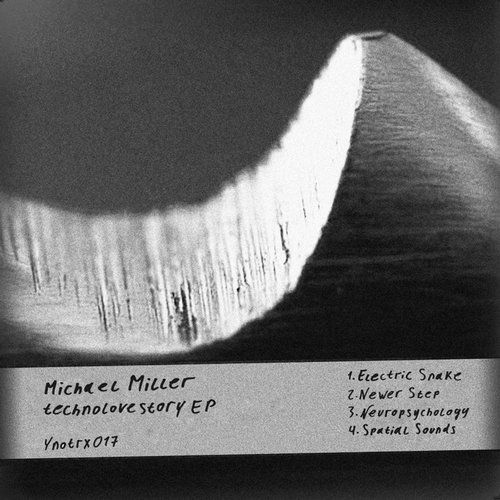 Michael Miller
technolovestory EP
Ynotrx017
1. Electric Snake
2. Newer Step
3. Neuropsychology
4. Spatial Sounds